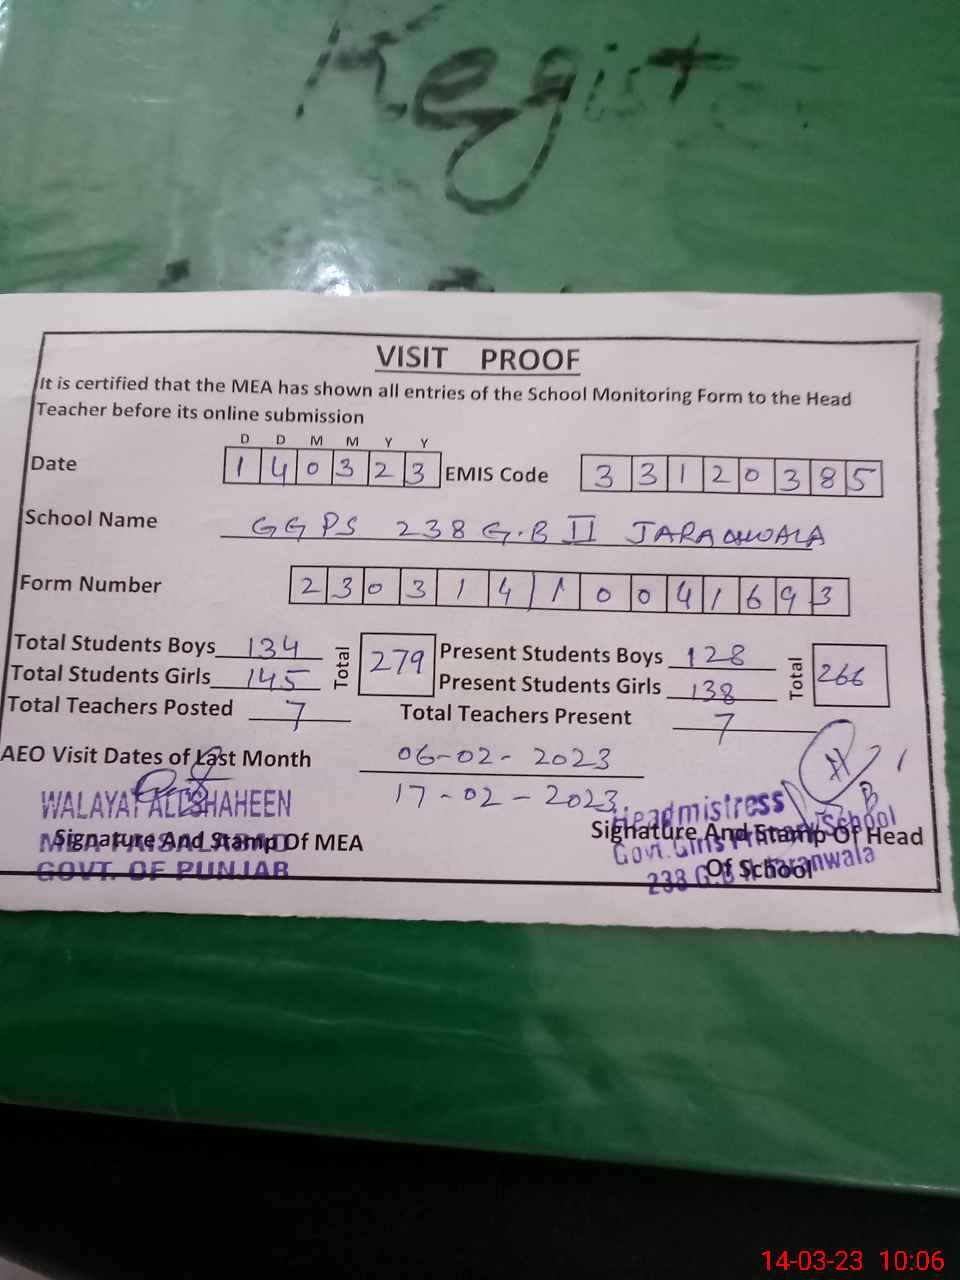 Regist
VISIT PROOF
It is certified that the MEA has shown all entries of the School Monitoring Form to the Head
Teacher before its online submission
D D M M Y Y
Date 1 4 0 3 2 3 EMIS Code 3 3 1 2 0 3 8 5
School Name GGPS 238 G.B II JARANWALA
Form Number 2 3 0 3 1 4 1 0 0 4 1 6 9 3
Total Students Boys 134 Total 279 Present Students Boys 128 Total 266
Total Students Girls 145 Present Students Girls 138
Total Teachers Posted 7 Total Teachers Present 7
AEO Visit Dates of Last Month 06-02-2023
17-02-2023
WALAYAT ALI SHAHEEN
MEA FAISALABAD
GOVT. OF PUNJAB
Signature And Stamp Of MEA
Headmistress
Govt. Girls Primary School
238 G.B II Jaranwala
Signature And Stamp Of Head
Of School
14-03-23 10:06